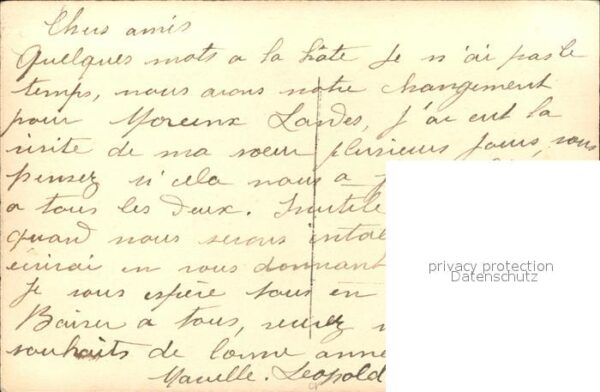 Chers amis
Quelques mots a la hâte Je n'ai pas le
temps, nous avons notre changement
pour Morcenx Landes, J'ai eut la
visite de ma sœur plusieurs jours, vous
pensez si cela nous a
a tous les deux. Inutile
quand nous serons
écrirai en vous donnant
Je vous espère tous en
Baiser a tous, recevez
souhaits de bonne anné
Leopold
privacy protection
Datenschutz